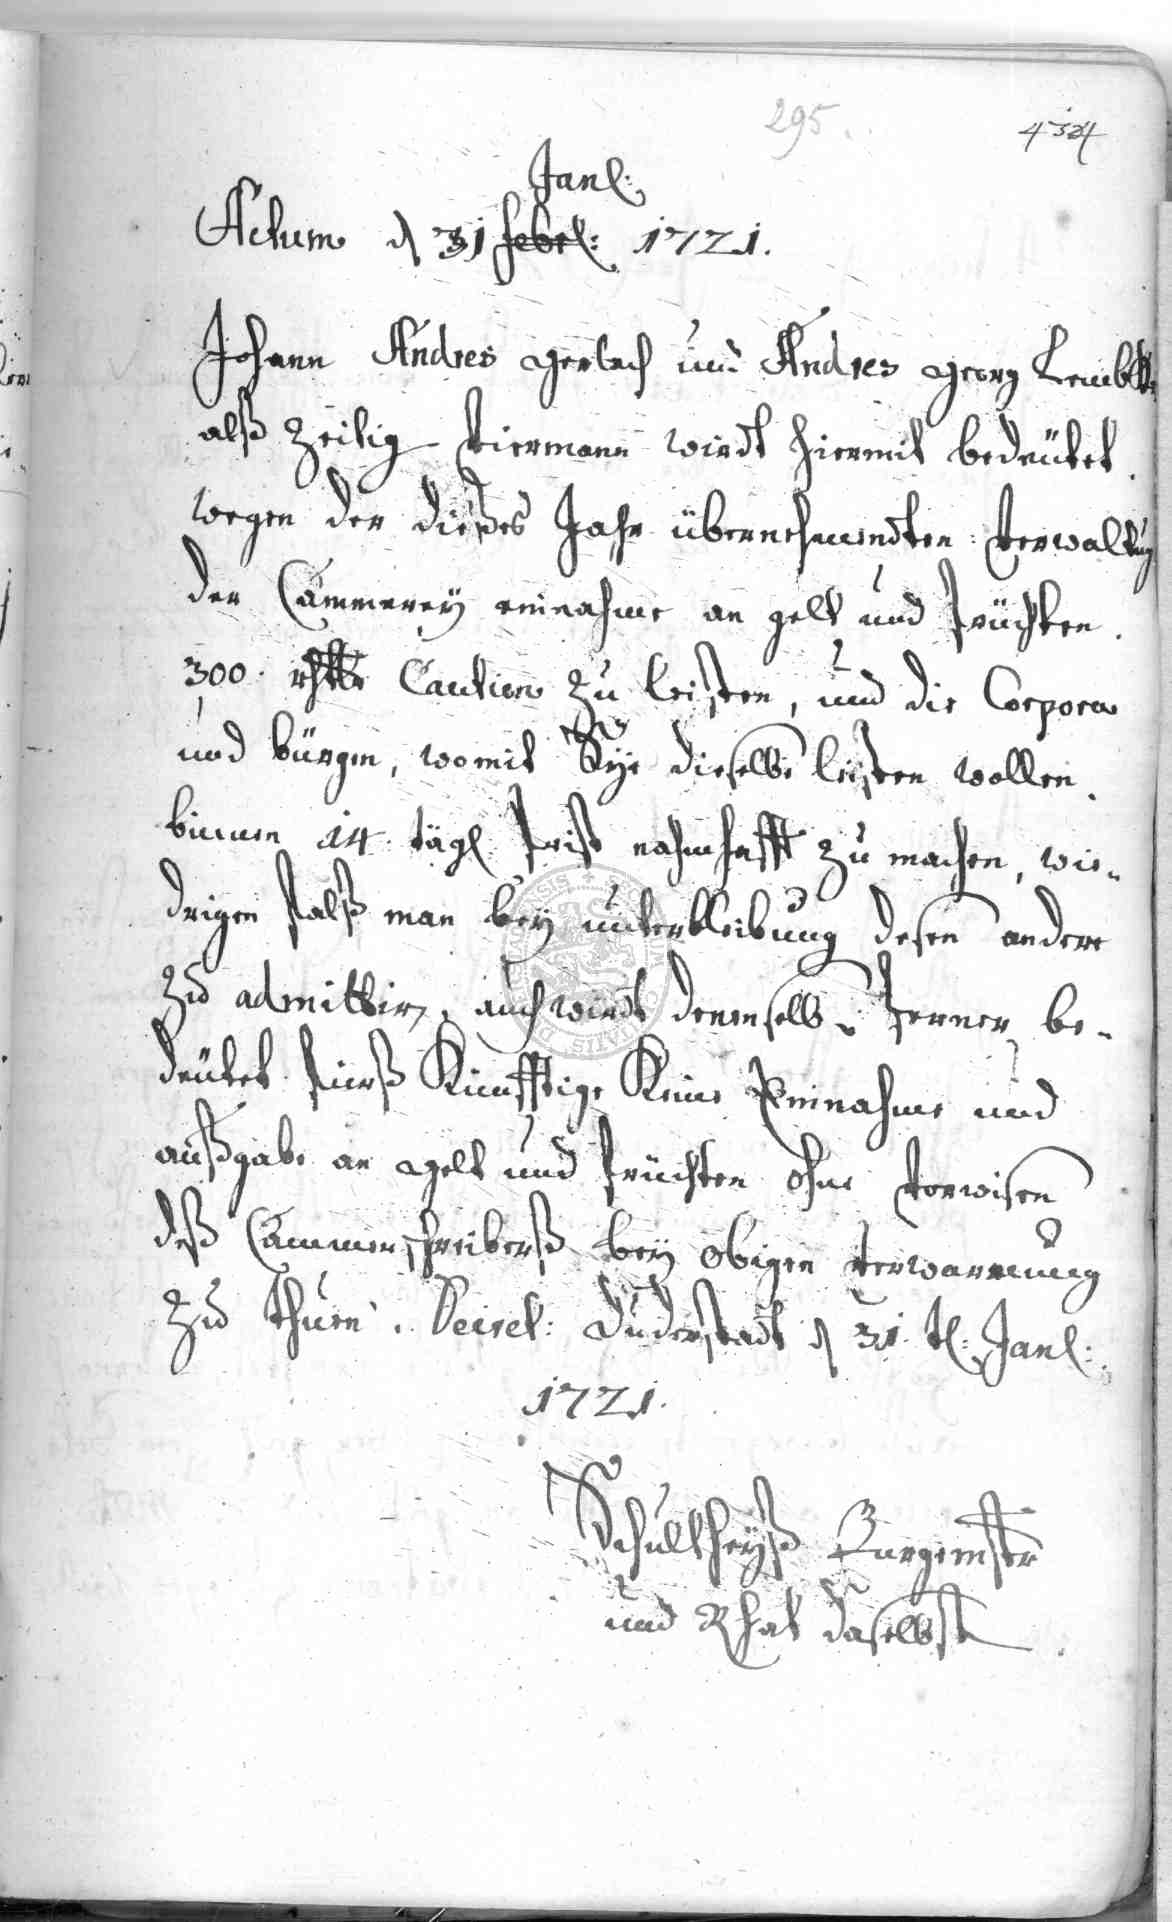 295.
434
Janl:
Actum d 31 febrl: 1721.
Johann Andres Gerlach und Andres Georg Lembke
alß Zeitig Viermann wirdt hiermit bedeütet
wegen der dießes Jahr übernehmendten Verwaltug
der Cämmerey einnahme an gelt und früchten.
300. rthlr Caution zu leisten, und die Corpora
und bürgen, womit Sye dieselbe leisten wollen.
binnen 14 tägl frist nahmhafft zu machen, wie-
drigen falß man bey unterbleibung desen andere
zu admittirn, auch wirdt denenselb. ferner be-
deütet fürß Künfftige Keine Einnahme und
außgabe an gelt und früchten ohne vorwisen
deß Cämmerschreiberß bey obigen verwarnung
zu thuen. Decret: Duderstadt d 31. tl: Janl:
1721.
Schultheyß Burgemster
und Rhat daselbst